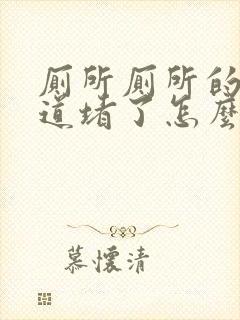 厕所厕所的
道堵了怎麼
慕懷清